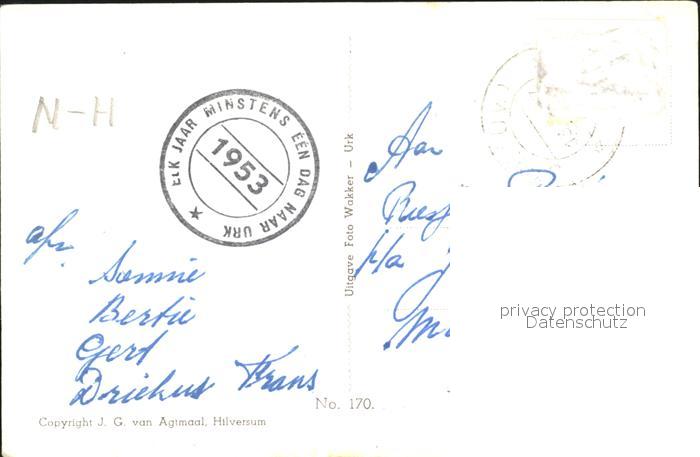 N-H
ELK JAAR MINSTENS ÉÉN DAG NAAR URK
1953
afz.
Sonnie
Bertie
Gert
Driekus Frans
Copyright J. G. van Agtmaal, Hilversum
No. 170.
Uitgave Foto Wakker – Urk
Aan
p/a
privacy protection
Datenschutz